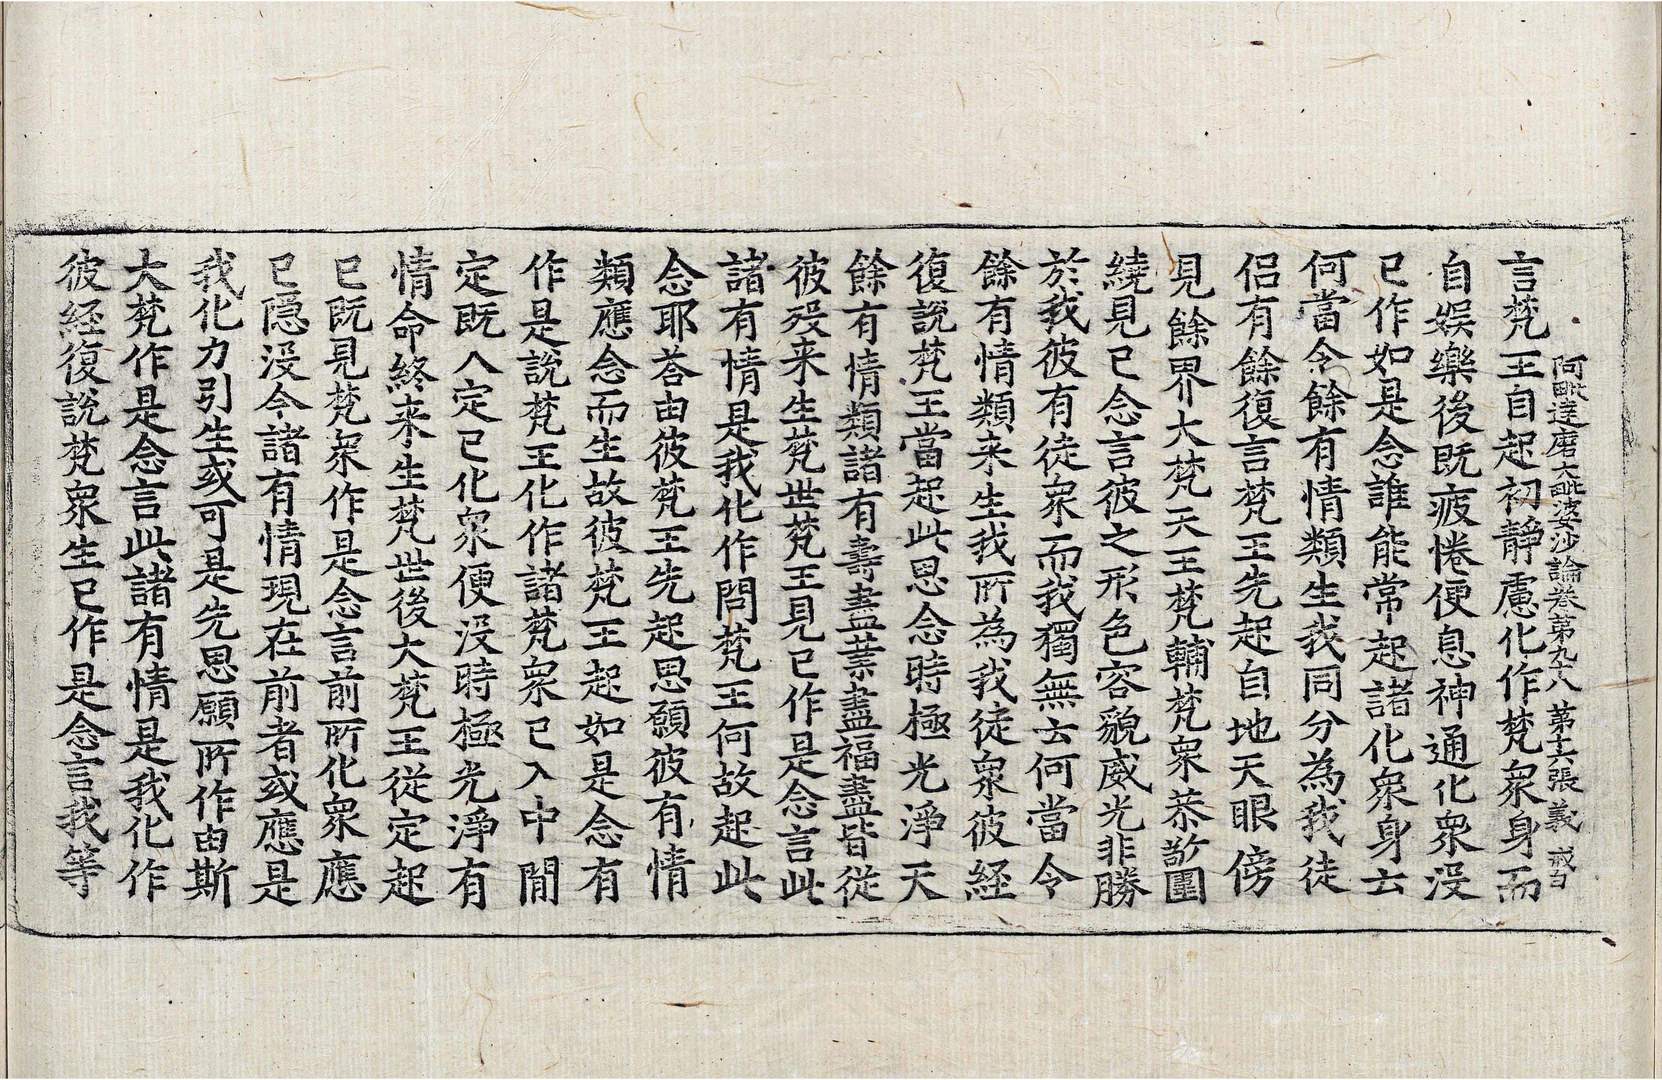 阿毗達磨大毗婆沙論卷第九十八 第十六張 義 戒白
言梵王自起初靜慮化作梵衆身而
自娛樂後既疲惓便息神通化衆没
已作如是念誰能常起諸化衆身云
何當令餘有情類生我同分為我徒
侣有餘復言梵王先起自地天眼傍
見餘界大梵天王梵輔梵衆恭敬圍
繞見已念言彼之形色容貌威光非勝
於我彼有徒衆而我獨無云何當令
餘有情類来生我所為我徒衆彼経
復說梵王當起此思念時極光淨天
餘有情類諸有壽盡業盡福盡皆從
彼歿来生梵世梵王見已作是念言此
諸有情是我化作問梵王何故起此
念耶荅由彼梵王先起思願彼有情
類應念而生故彼梵王起如是念有
作是說梵王化作諸梵衆已入中間
定既入定已化衆便没時極光淨有
情命終来生梵世後大梵王從定起
已既見梵衆作是念言前所化衆應
已隱没今諸有情現在前者或應是
我化力引生或可是先思願所作由斯
大梵作是念言此諸有情是我化作
彼経復說梵衆生已作是念言我等